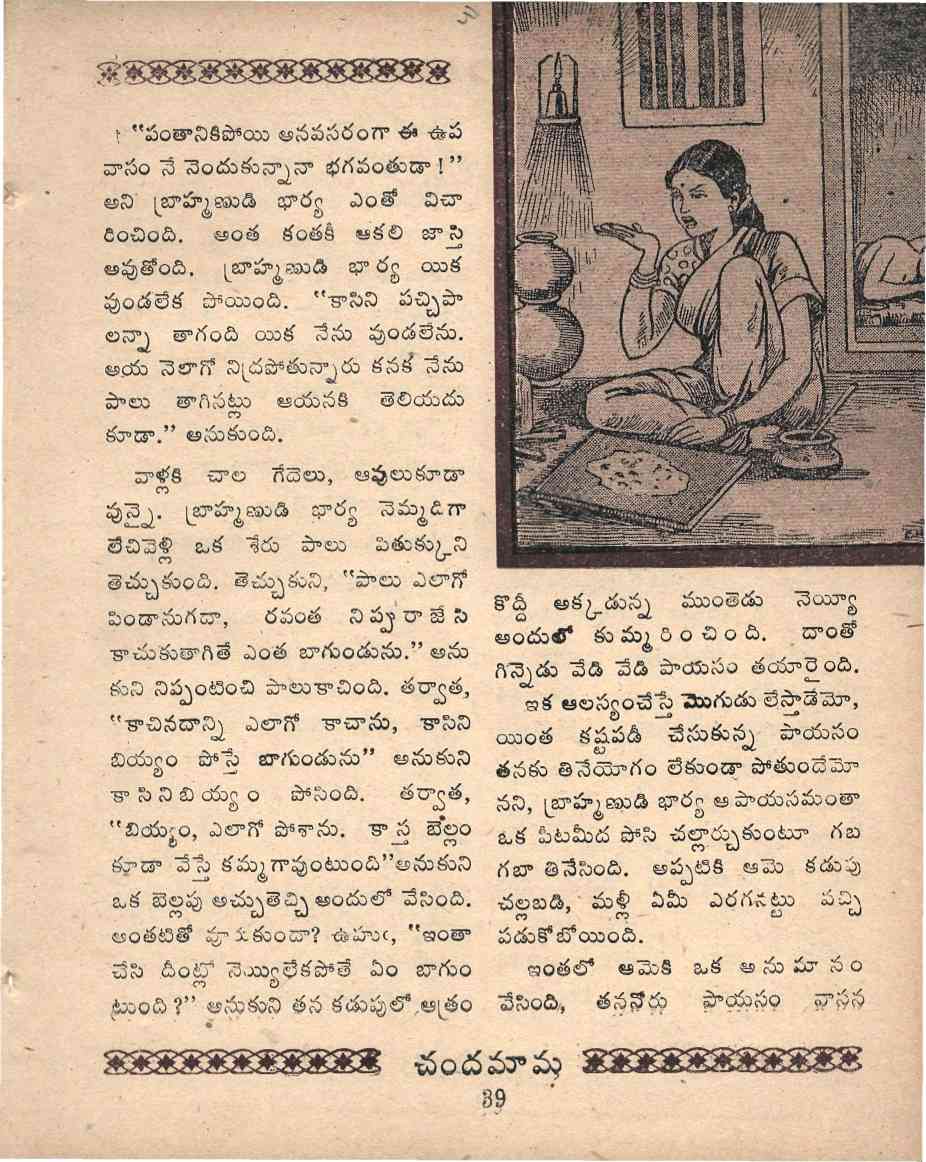 “పంతానికిపోయి అనవసరంగా ఈ ఉప
వాసం నే నెందుకున్నానా భగవంతుడా!”
అని బ్రాహ్మణుడి భార్య ఎంతో విచా
రించింది. అంత కంతకీ ఆకలి జాస్తి
అవుతోంది. బ్రాహ్మణుడి భార్య యిక
వుండలేక పోయింది. “కాసిని పచ్చిపా
లన్నా తాగంది యిక నేను వుండలేను.
ఆయ నెలాగో నిద్రపోతున్నారు కనక నేను
పాలు తాగినట్లు ఆయనకి తెలియదు
కూడా.” అనుకుంది.
వాళ్లకి చాల గేదెలు, ఆవులుకూడా
వున్నై. బ్రాహ్మణుడి భార్య నెమ్మదిగా
లేచివెళ్లి ఒక శేరు పాలు పితుక్కుని
తెచ్చుకుంది. తెచ్చుకుని, “పాలు ఎలాగో
పిండానుగదా, రవంత నిప్పు రాజేసి
కాచుకుతాగితే ఎంత బాగుండును.” అను
కుని నిప్పంటించి పాలుకాచింది. తర్వాత,
“కాచినదాన్ని ఎలాగో కాచాను, కాసిని
బియ్యం పోస్తే బాగుండును” అనుకుని
కాసినిబియ్యం పోసింది. తర్వాత,
“బియ్యం, ఎలాగో పోశాను. కాస్త బెల్లం
కూడా వేస్తే కమ్మగావుంటుంది”అనుకుని
ఒక బెల్లపు అచ్చుతెచ్చి అందులో వేసింది.
అంతటితో వూరుకుందా? ఉహుఁ, “ఇంతా
చేసి దీంట్లో నెయ్యిలేకపోతే ఏం బాగుం
టుంది?” అనుకుని తన కడుపులో ఆత్రం
కొద్దీ అక్కడున్న ముంతెడు నెయ్యీ
అందులో కుమ్మరించింది. దాంతో
గిన్నెడు వేడి వేడి పాయసం తయారైంది.
ఇక ఆలస్యంచేస్తే మొగుడు లేస్తాడేమో,
యింత కష్టపడీ చేసుకున్న పాయసం
తనకు తినేయోగం లేకుండా పోతుందేమో
నని, బ్రాహ్మణుడి భార్య ఆ పాయసమంతా
ఒక పీటమీద పోసి చల్లార్చుకుంటూ గబ
గబా తినేసింది. అప్పటికి ఆమె కడుపు
చల్లబడి, మళ్లీ ఏమీ ఎరగనట్టు వచ్చి
పడుకోబోయింది.
ఇంతలో ఆమెకి ఒక అనుమానం
వేసింది, తననోరు పాయసం వాసన
చందమామ
39